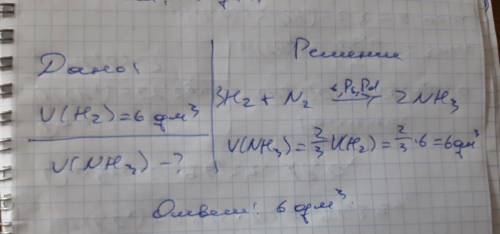 Дано:
V(H₂)=6 дм³
V(NH₃) - ?
Решение
3H₂ + N₂ ⟶ 2NH₃
V(NH₃)=2/3 V(H₂)=2/3·6=6дм³
Ответ: 6 дм³.